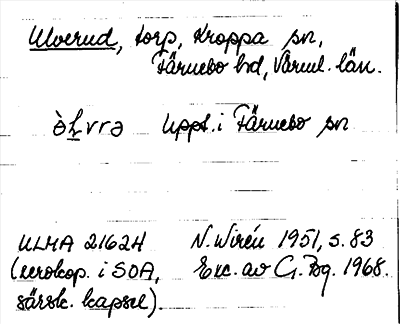 Ulverud, torp, Kroppa sn,
Färnebo hd, Värml. län.
Uppt. i Färnebo sn
ULMA 21624 N. Wirén 1951, s. 83
(xerokop. i SOA, Exc. av G. Bg. 1968.
särsk. kapsel).